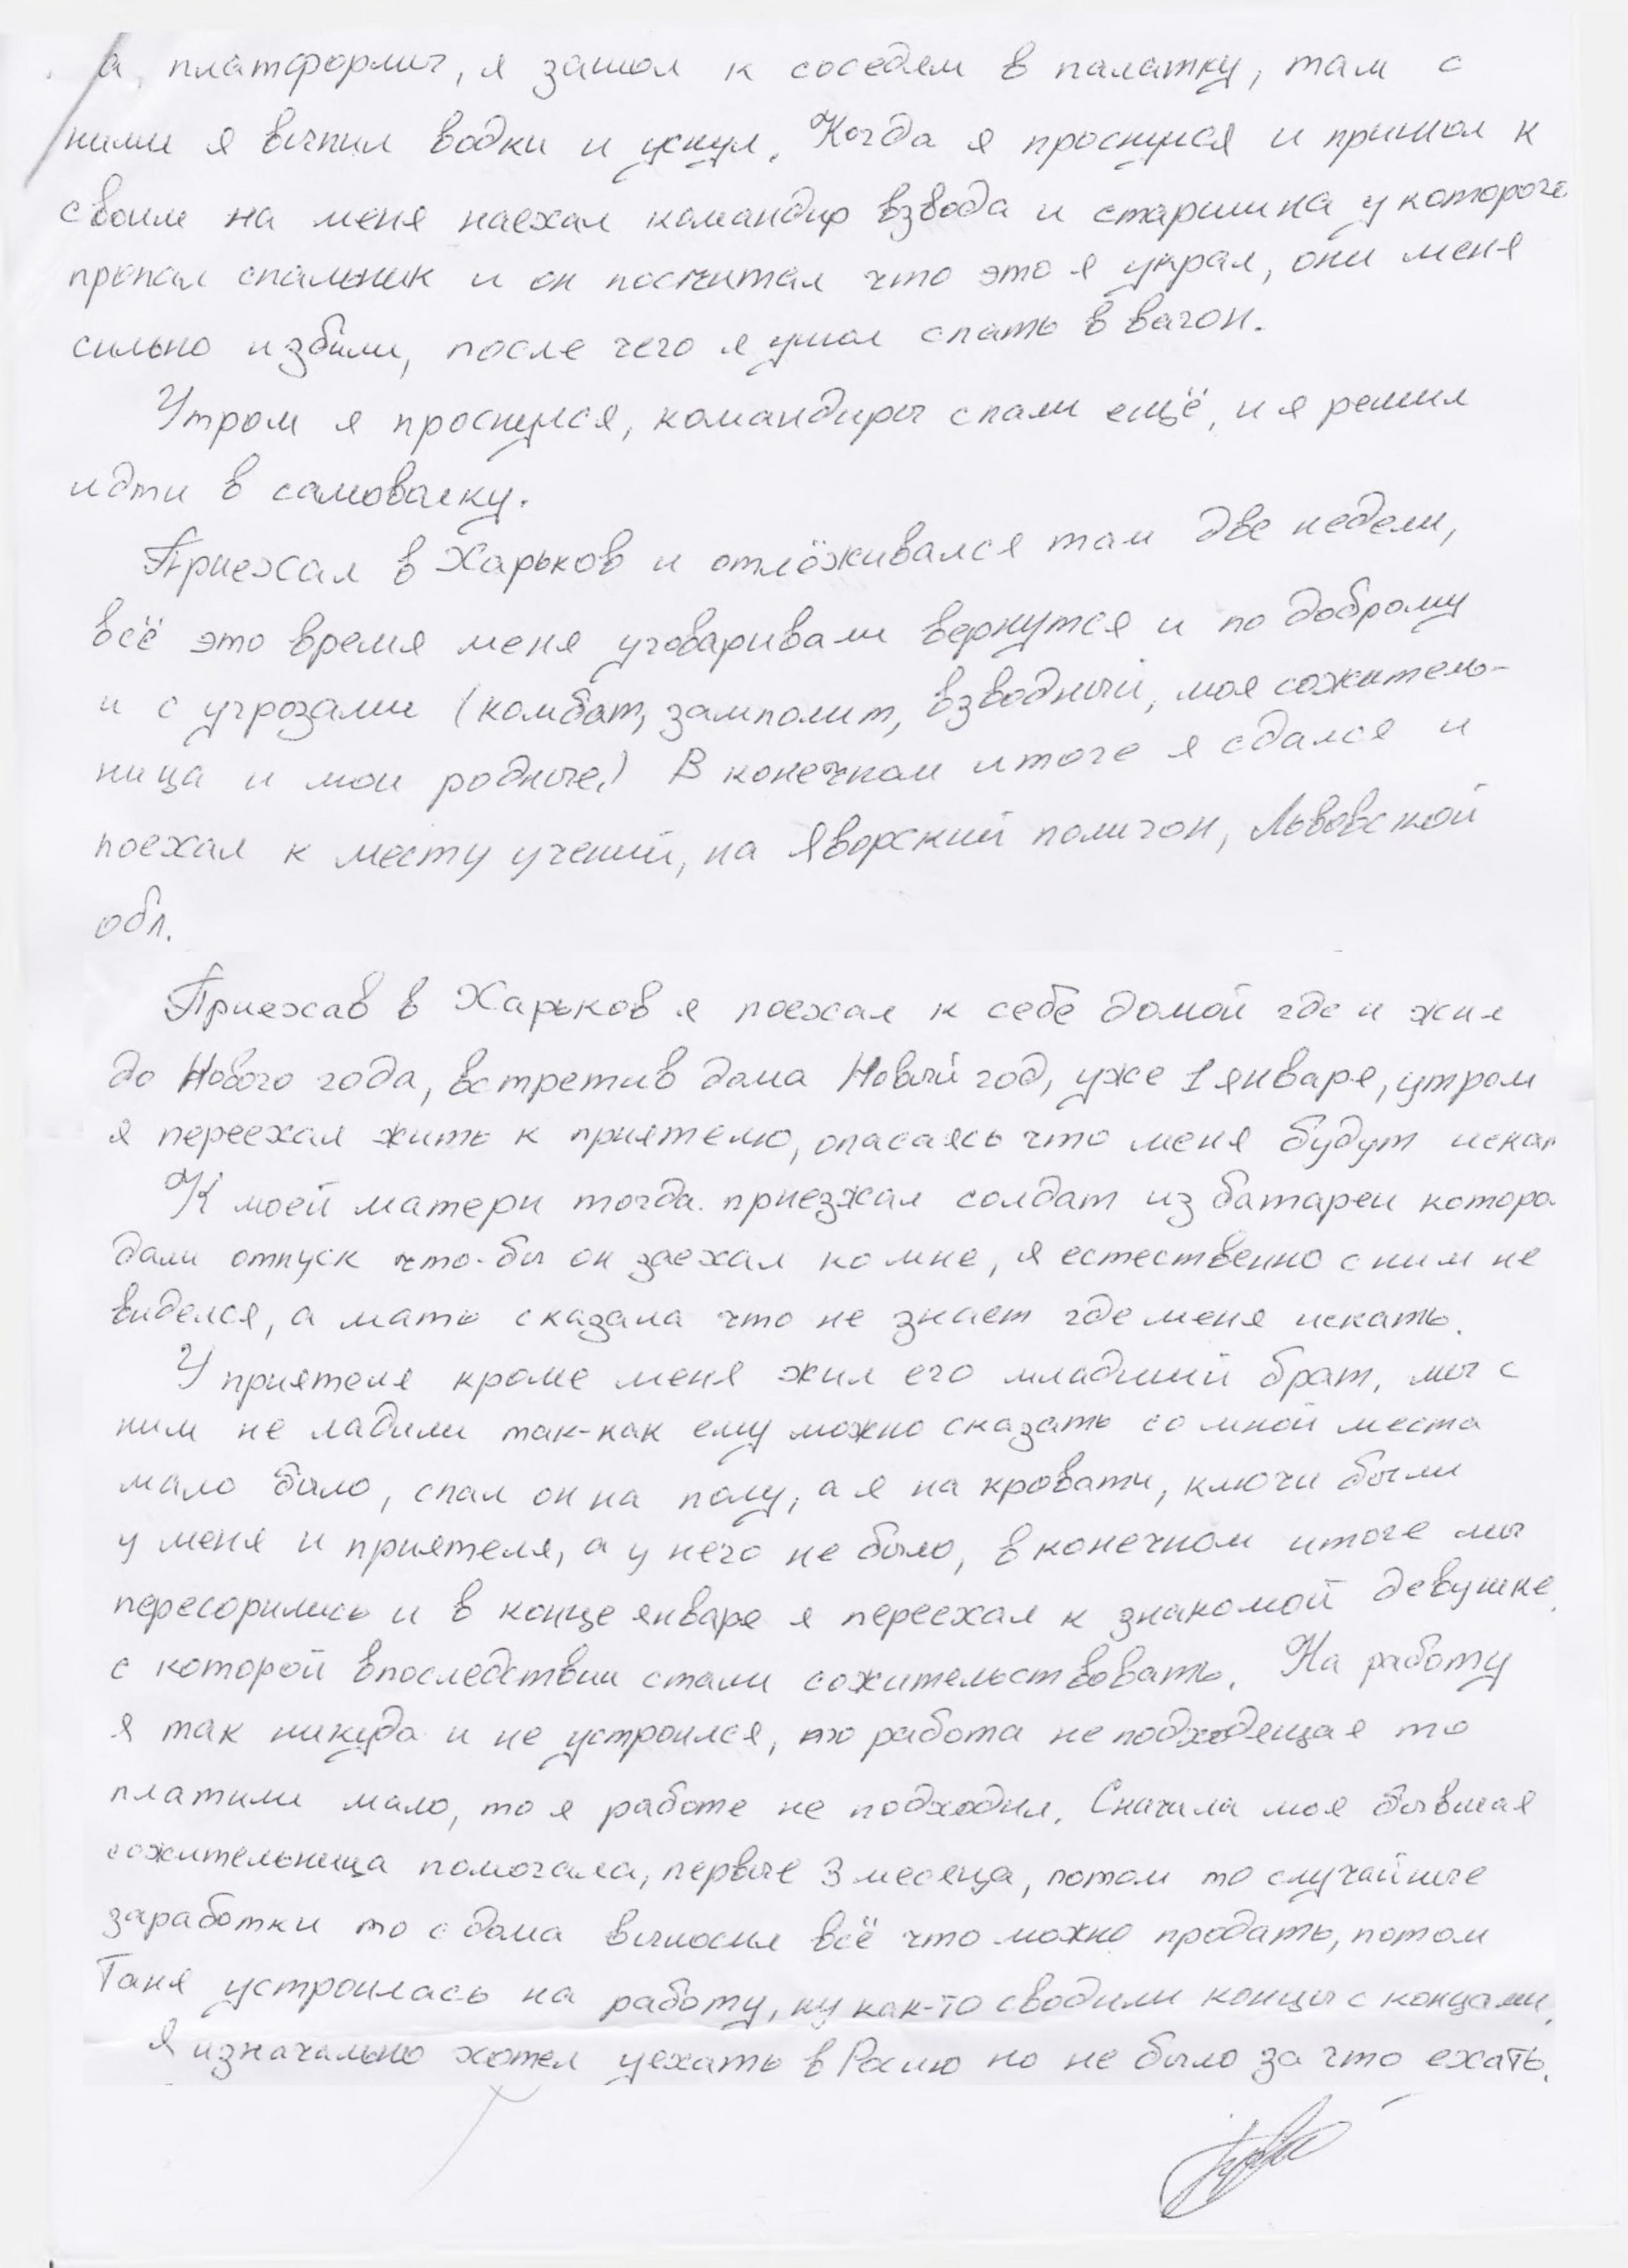 а, платформы, я зашол к соседям в палатку, там с
ними я выпил водки и уснул. Когда я проснулся и пришол к
своим на меня наехал командир взвода и старшина у которого
пропал спальник и он посчитал что это я украл, они меня
сильно избили, после чего я ушол спать в вагон.
Утром я проснулся, командиры спали ещё, и я решил
идти в самоволку.
Приехал в Харьков и отлёживался там две недели,
всё это время меня уговаривали вернутся и по доброму
и с угрозами (комбат, замполит, взводный, моя сожитель-
ница и мои родные.) В конечном итоге я сдался и
поехал к месту учений, на Яворский полигон, Львовской
обл.
Приехав в Харьков я поехал к себе домой где и жил
до Нового года, встретив дома Новый год, уже 1 января, утром
я переехал жить к приятелю, опасаясь что меня будут искат
К моей матери тогда приезжал солдат из батареи которо
дали отпуск что-бы он заехал ко мне, я естественно с ним не
виделся, а мать сказала что не знает где меня искать.
У приятеля кроме меня жил его младший брат, мы с
ним не ладили так-как ему можно сказать со мной места
мало было, спал он на полу, а я на кровати, ключи были
у меня и приятеля, а у него не было, в конечном итоге мы
пересорились и в конце января я переехал к знакомой девушке,
с которой впоследствии стали сожительствовать. На работу
я так никуда и не устроился, то работа не подходящая то
платили мало, то я работе не подходил. Сначала моя бывшая
сожительница помогала, первые 3 месяца, потом то случайные
заработки то с дома выносил всё что можно продать, потом
Таня устроилась на работу, ну как-то сводили концы с концами.
Я изначально хотел уехать в Росию но не было за что ехать.